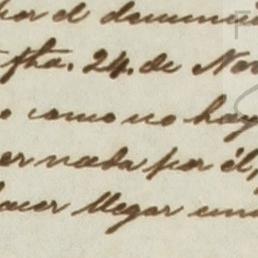 por el denuncia
fha. 24. de Nov
o como no hay
er nada por él,
hacer llegar una